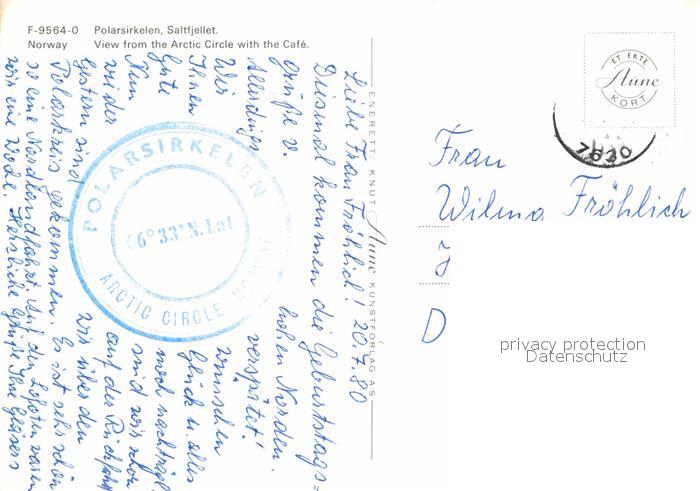 F-9564-0 Polarsirkelen, Saltfjellet.
Norway View from the Arctic Circle with the Café.
ENERETT KNUT Aune KUNSTFORLAG AS
ET EKTE
Aune
KORT
7630
Liebe Frau Fröhlich! 20.7.80
Diesmal kommen die Geburtstags=
grüße v. hohen Norden.
Allerdings verspätet!
Wir wünschen
Ihnen Glück u. alles
Gute noch nachträgl.
Nun sind wir schon
wieder auf der Rückfahrt
Gestern sind wir über den
Polarkreis gekommen. Es ist sehr schön
so eine Nordlandfahrt. Auf den Lofoten waren
wir eine Woche. Herzliche Grüße Ihre
POLARSIRKELEN
66°33' N. Lat
ARCTIC CIRCLE, NORWAY
Frau
Wilma Fröhlich
D
privacy protection
Datenschutz